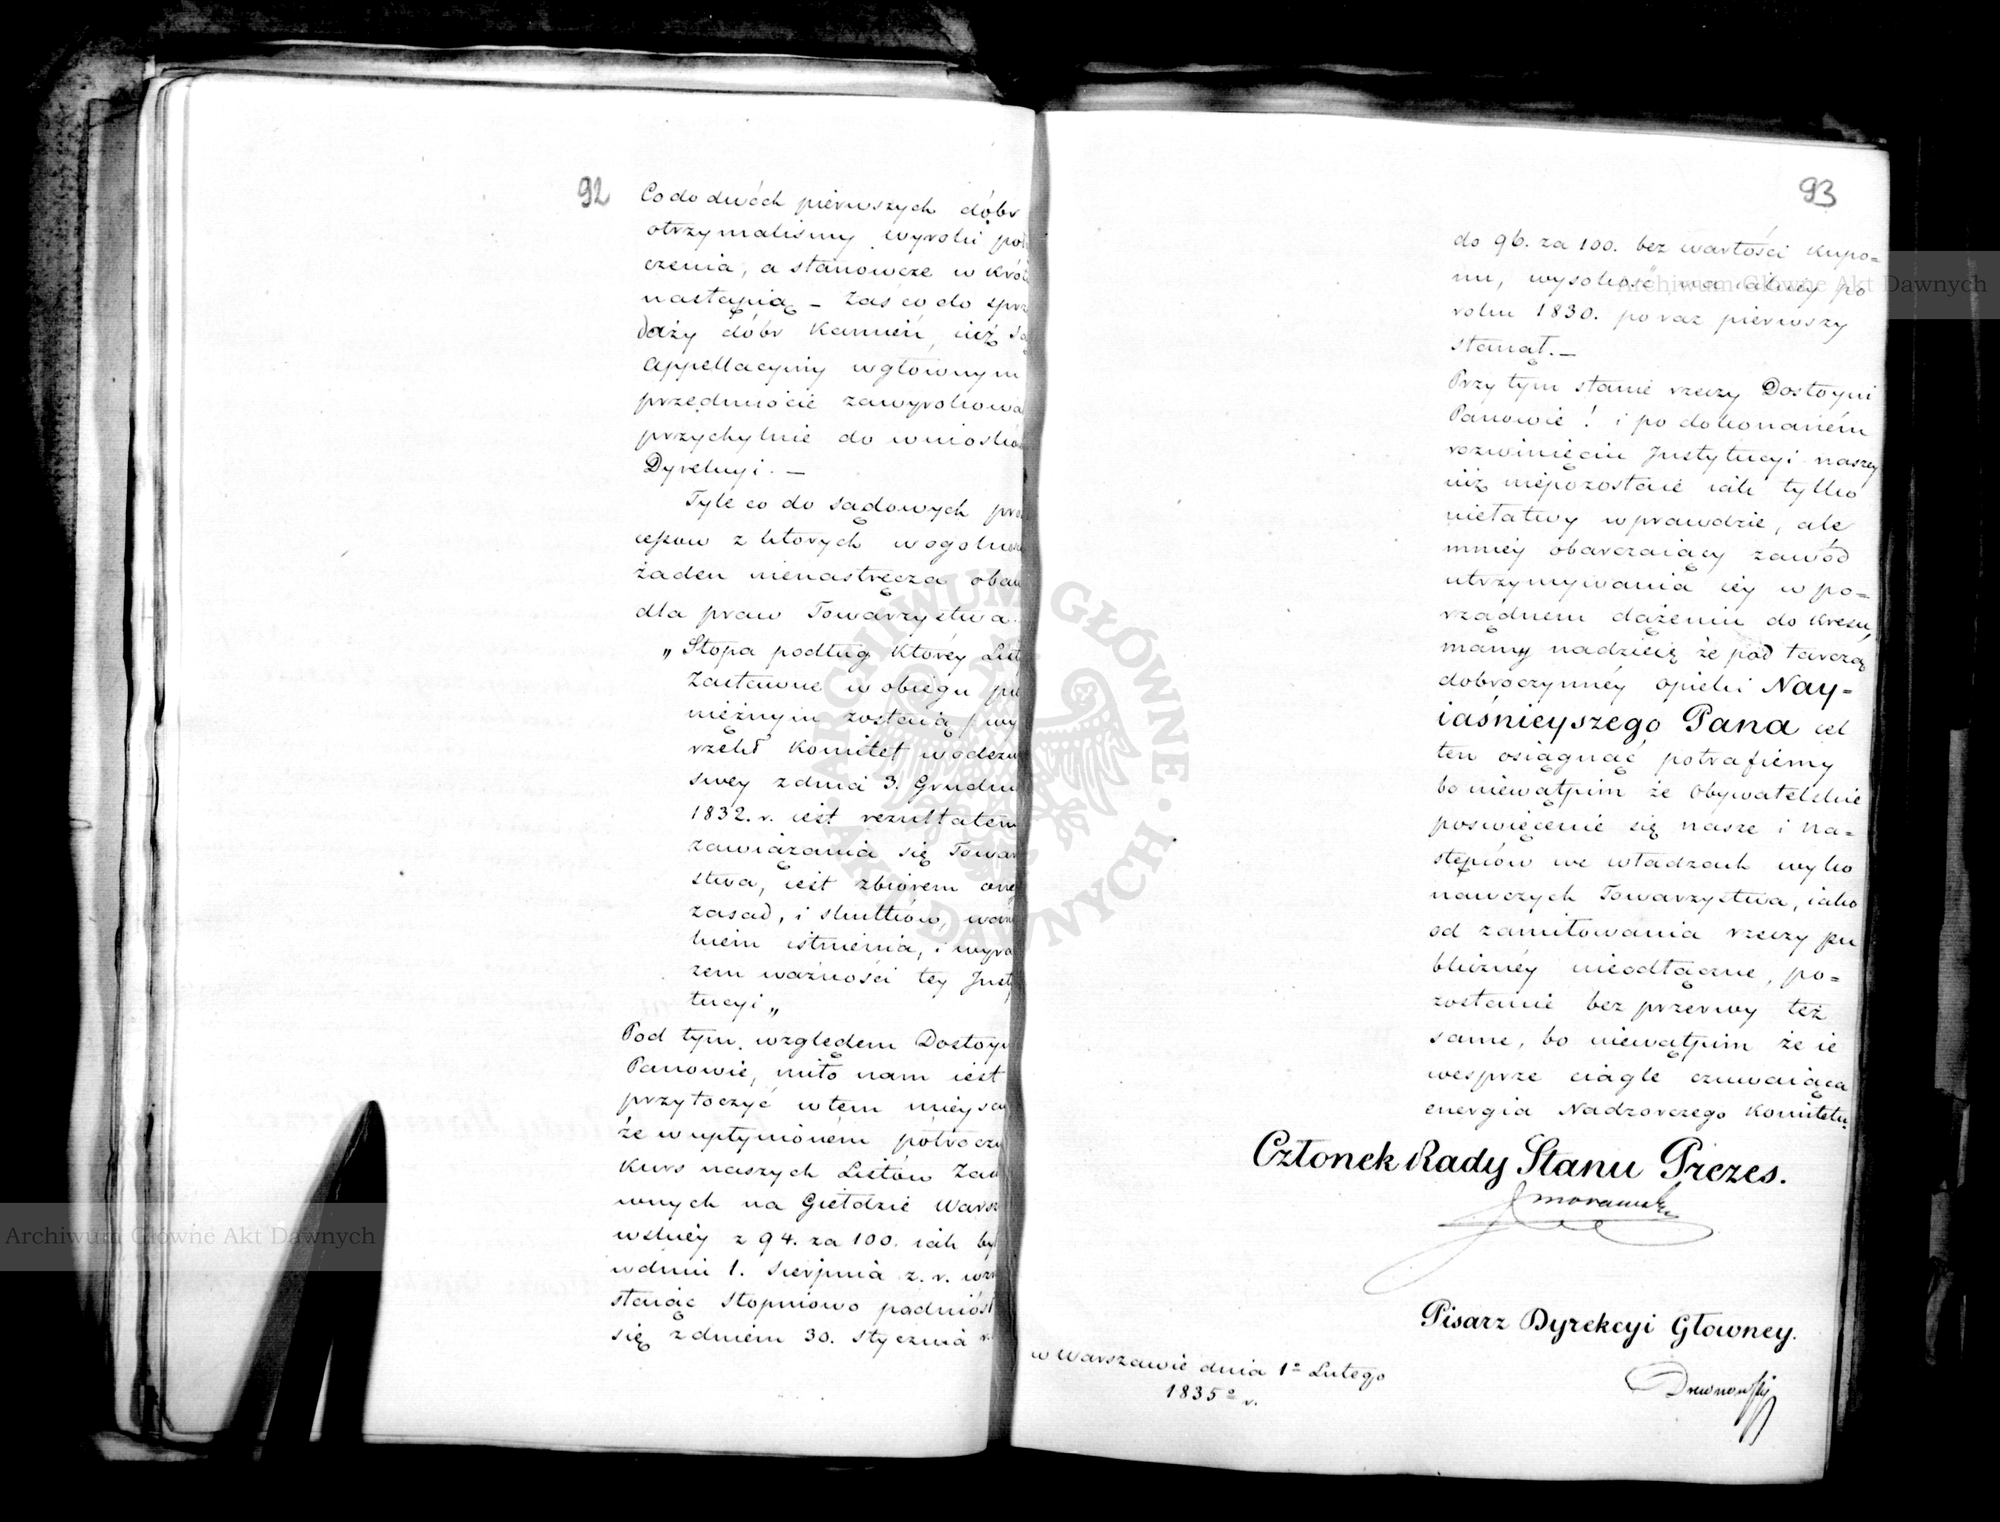 92
Co do dwóch pierwszych dóbr
otrzymaliśmy wyroki
czenia, a stanowcze w
nastąpią – Zaś co do sprz
daży dóbr Kamień, ież
Appellacyiny w głównym
przedmiocie zawyrokowa
przychylnie do wniosków
Dyrekcyi. –
Tyle co do sądowych pro
cessow z których wogolnos
żaden nienastręcza obaw
dla praw Towarzystwa.
„ Stopa podług któréy List
Zastawne w obiegu pie
niężnym zostaią, wy
rzekł Komitet w odezw
swey z dnia 3. Grudnia
1832. r. iest rezultatem
zawiązania się Towarz
stwa, iest zbiorem
zasad, i skutków, warun
kiem istnienia, i wyra
zem ważności tey Insty
tucyi „
Pod tym względem Dostoyn
Panowie, miło nam iest
przytoczyć w tem mieysc
że w upłynioném półrocz
Kurs naszych Listów Zas
wnych na Giełdzie Warsz
wskiey z 94. za 100. iak był
w dniu 1. Sierpnia z. r. wzr
staiąc stopniowo podniósł
się z dniem 30. stycznia r.
93
do 96. za 100. bez wartości Kupo=
nu, wysokość, na iakiey po
roku 1830. po raz pierwszy
stanął. –
Przy tym stanie rzeczy Dostoyni
Panowie ! i po dokonaném
rozwinięciu Instytucyi naszey
niż niepozostaie iak tylko
niełatwy wprawdzie, ale
mniey obarczaiący zawód
utrzymywania iéy w po=
rządnem dążeniu do Kresu,
mamy nadzieię że pod tarczą
dobroczynnéy opieki Nay=
iaśnieyszego Pana cel
ten osiągnąć potrafiemy
bo niewątpim że Obywatelskie
poswięcenie się nasze i na=
stępców we władzach wyko
nawczych Towarzystwa, iako
od zamiłowania rzeczy pu
bliczney nieodłączne, po=
zostanie bez przerwy też
same, bo niewątpim że ie
wesprze ciągle czuwaiąca
energia Nadzorczego Komitetu.
Członek Rady Stanu Prezes.
J Morawski
Pisarz Dyrekcyi Głowney.
Drewnowski
w Warszawie dnia 1º Lutego
1835º r.
Archiwum Główne Akt Dawnych
Archiwum Główne Akt Dawnych
ARCHIWUM GŁÓWNE
AKT DAWNYCH